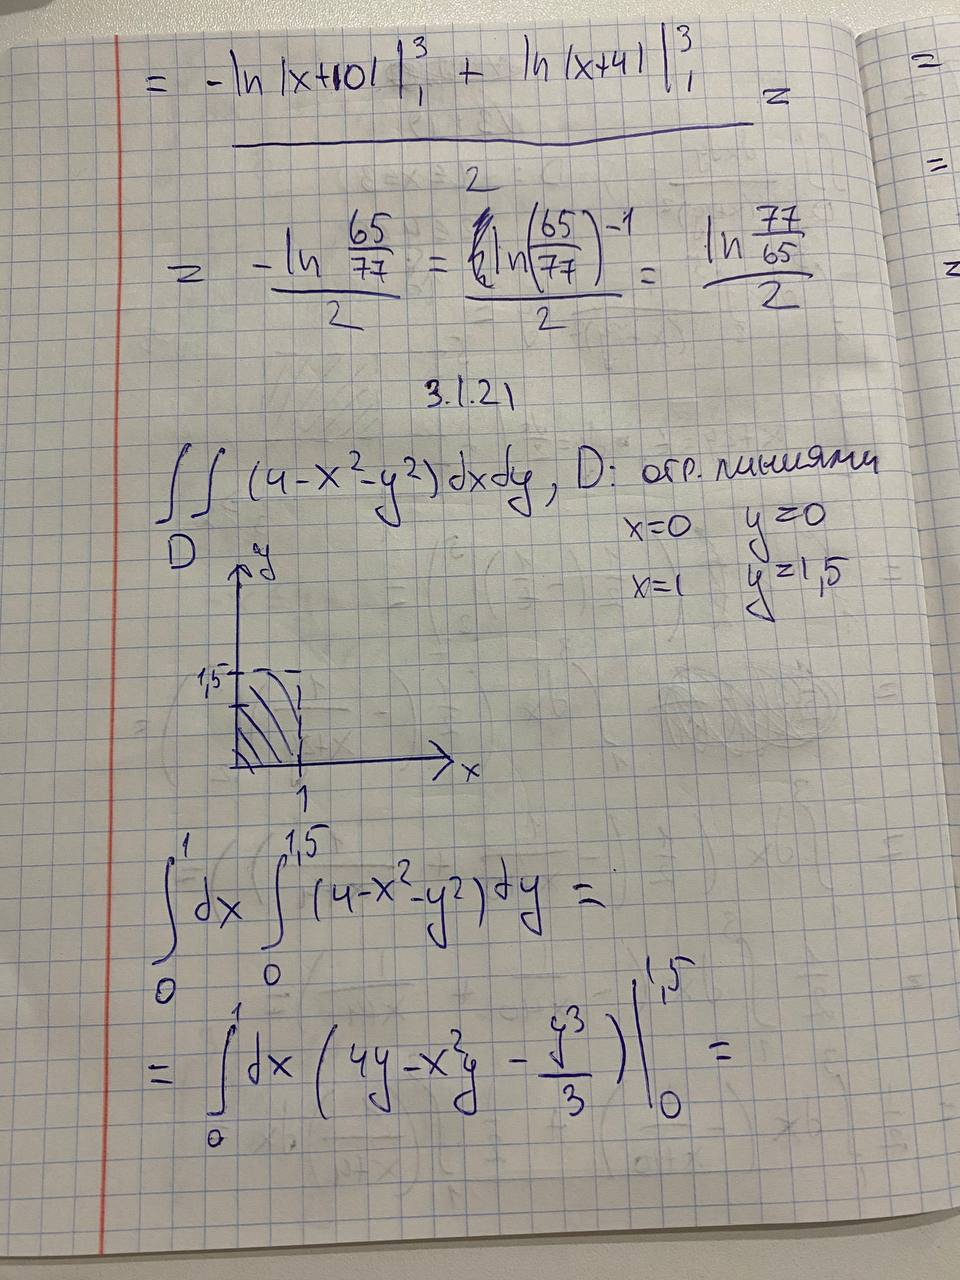 = -ln|x+10| |₁³ + ln|x+4| |₁³ / 2 =
= -ln 65/77 / 2 = ln(65/77)⁻¹ / 2 = ln 77/65 / 2
3.1.21
∬_D (4-x²-y²)dxdy, D: огр. линиями
x=0 y=0
x=1 y=1,5
y
1,5
x
1
∫₀¹ dx ∫₀^1,5 (4-x²-y²)dy =
= ∫₀¹ dx (4y-x²y - y³/3)|₀^1,5 =
=
=
=